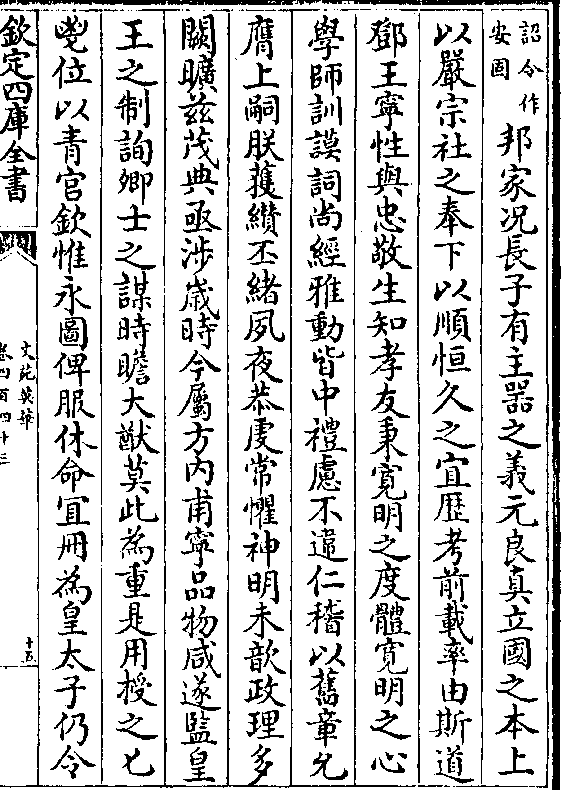 詔令作安固邦家况長子有主器之義元良真立國之本上
以嚴宗社之奉下以順恒久之宜歷考前載率由斯道
鄧王寧性與忠敬生知孝友秉寛明之度體寛明之心
學師訓謨詞尚經雅動皆中禮慮不違仁稽以舊章允
膺上嗣朕獲纘丕緒夙夜恭虔常懼神明未歆政理多
闕曠兹茂典亟涉歳時今屬方内甫寧品物咸遂監皇
王之制詢卿士之謀時瞻大猷莫此為重是用授之匕
鬯位以青宫欽惟永圖俾服休命宜冊為皇太子仍令
欽定四庫全書
文苑英華
卷四百四十三
十五